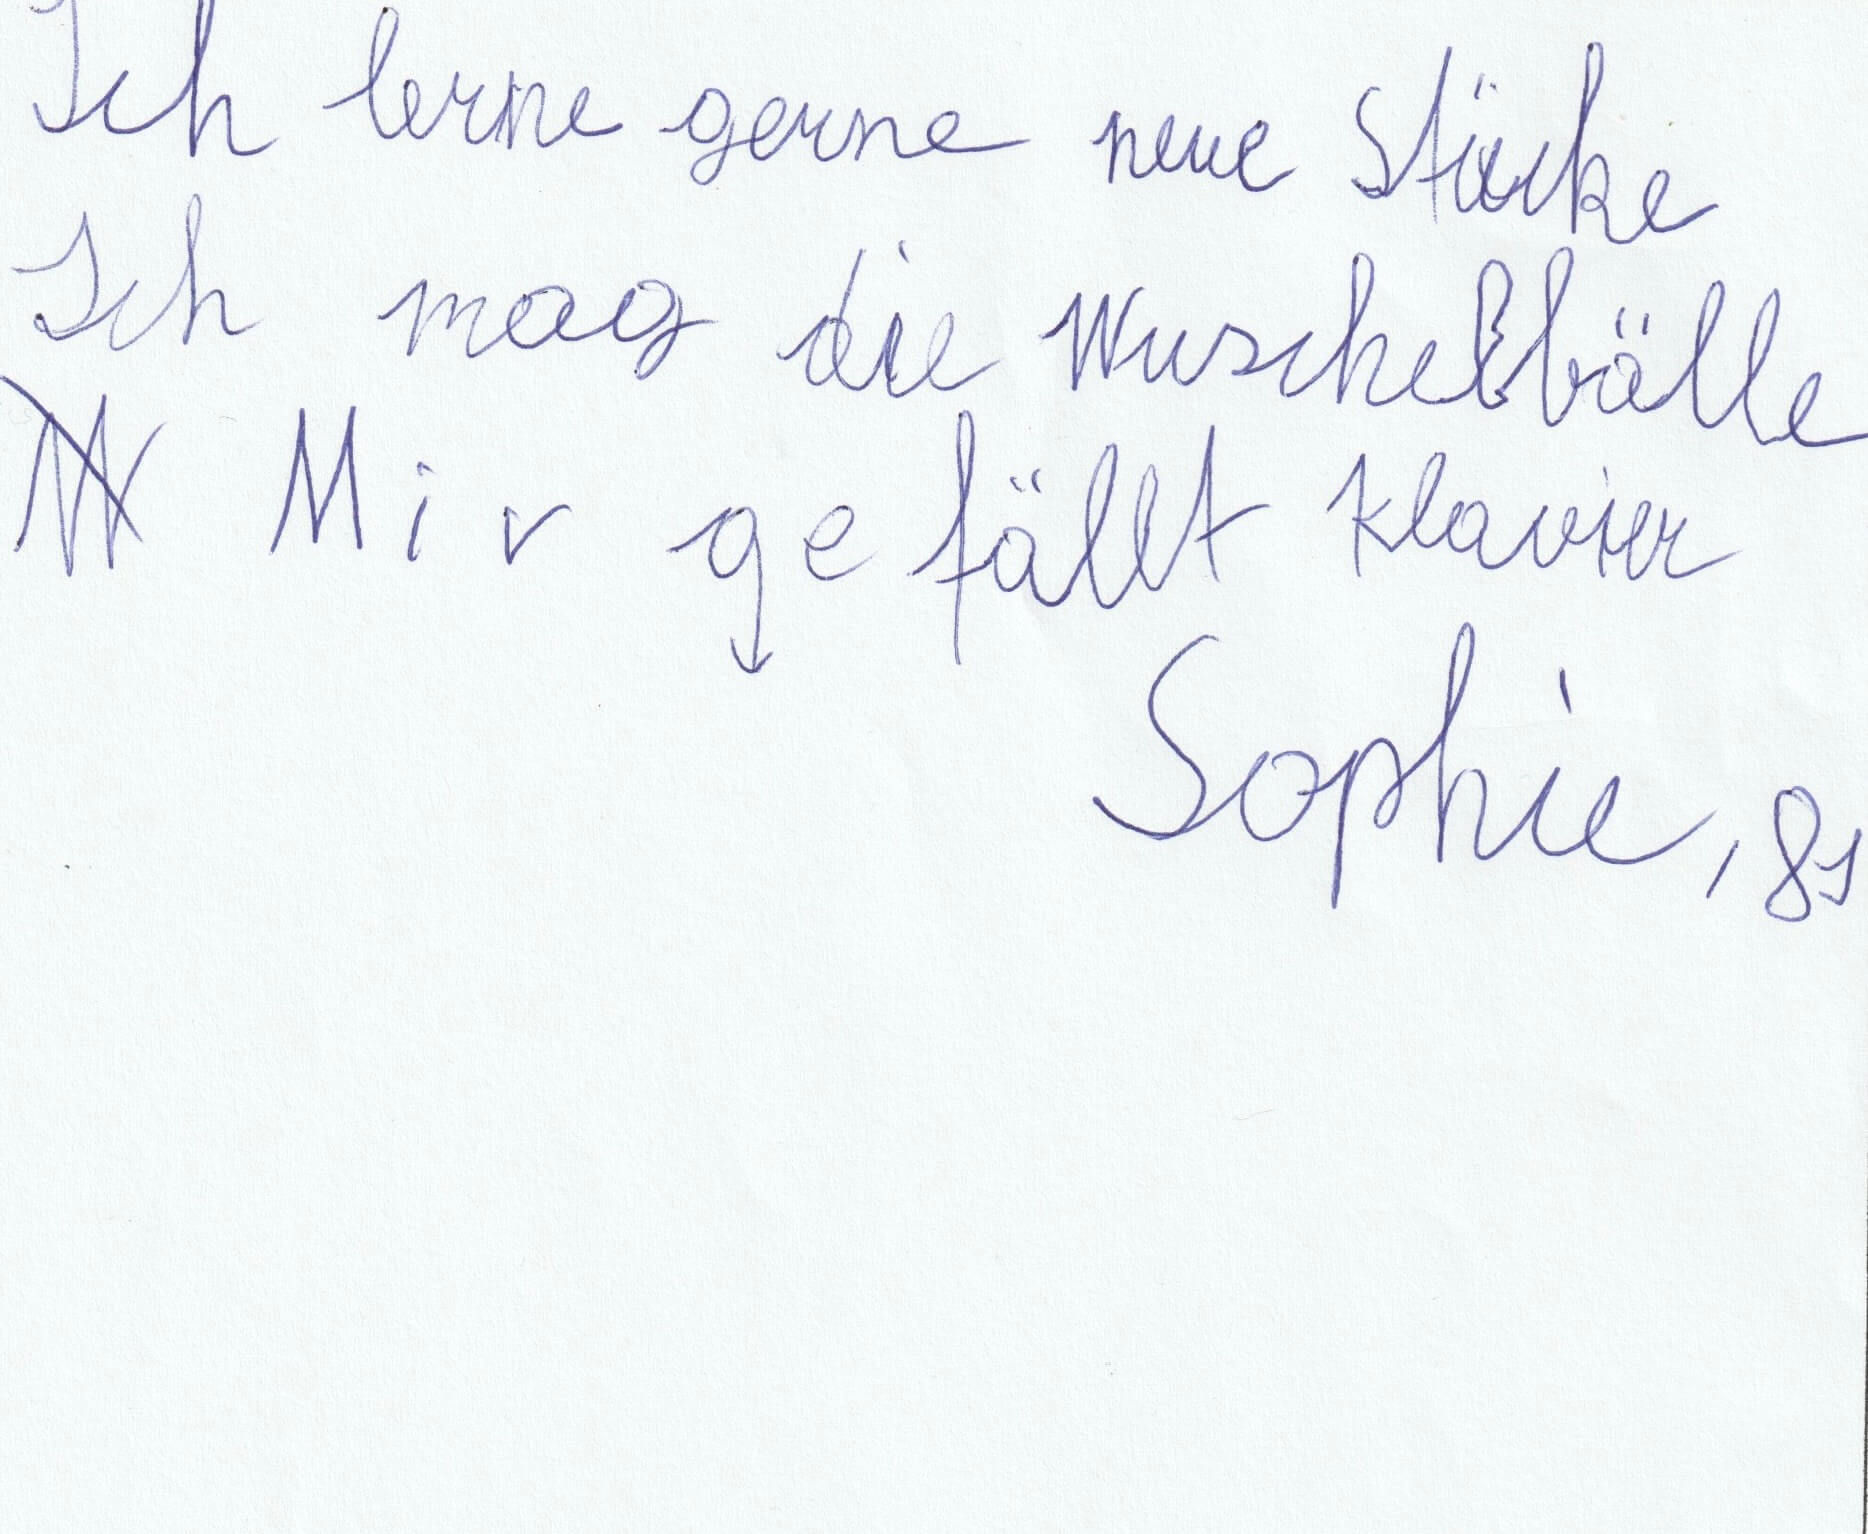 Ich lerne gerne neue Stücke
Ich mag die Wuschelbälle
Mir gefällt klavier
Sophie, 8